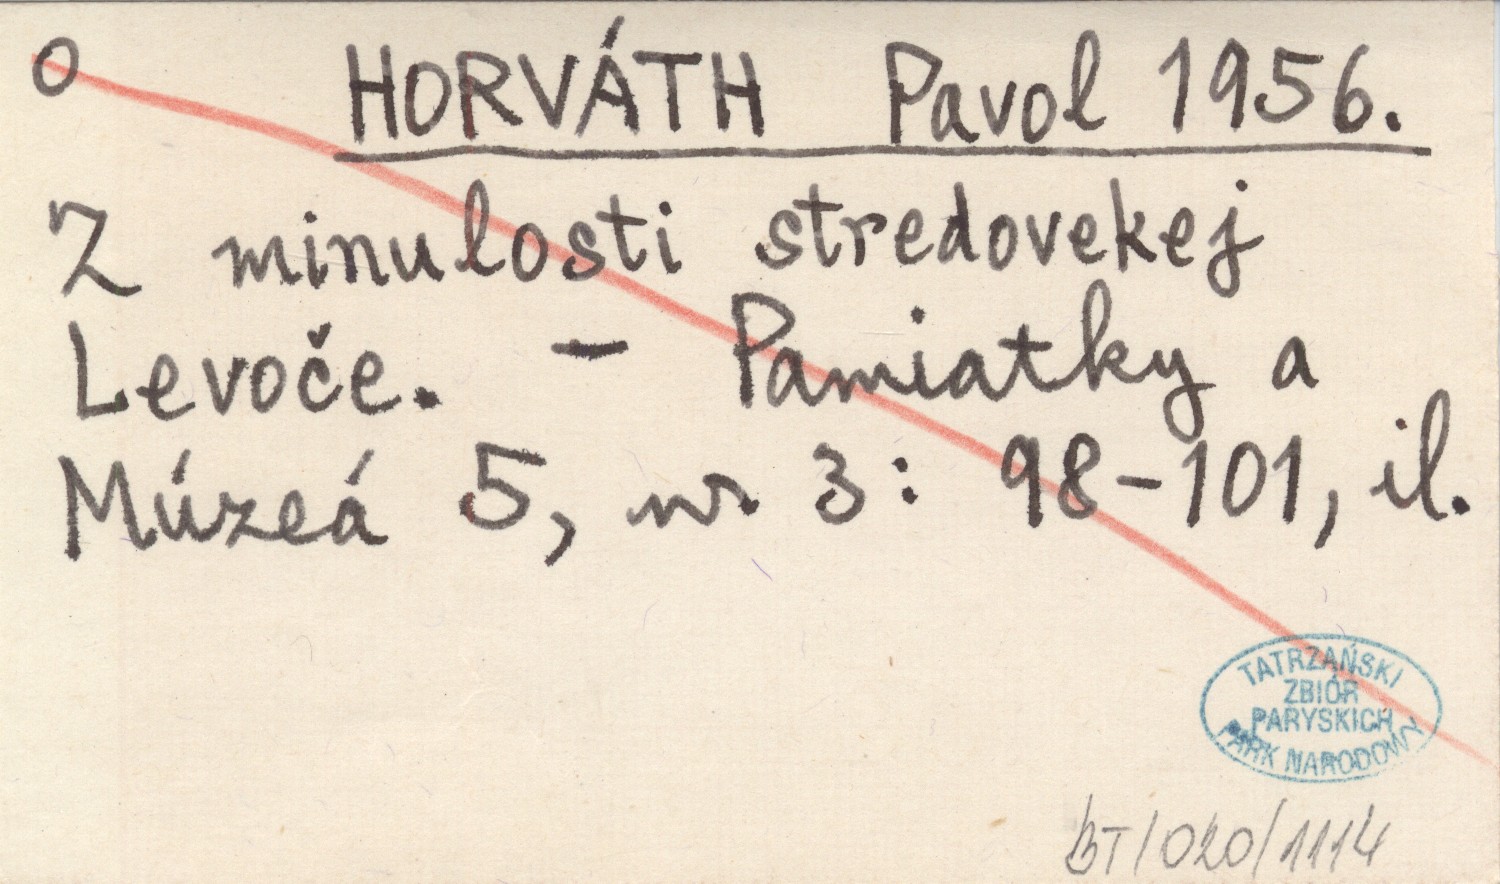 O HORVÁTH Pavol 1956.
Z minulosti stredovekej
Levoče. – Pamiatky a
Múzeá 5, nr. 3: 98-101, il.
TATRZAŃSKI
ZBIÓR
PARYSKICH
PARK NARODOWY
BT/020/1114